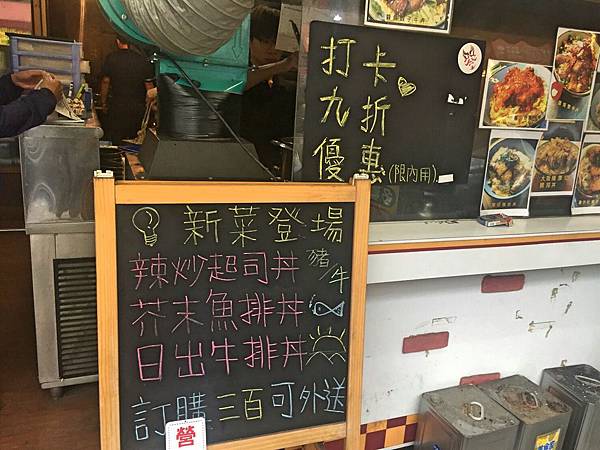 打卡
九折
優惠(限內用)
新菜登場
辣炒起司丼 豬/牛
芥末魚排丼
日出牛排丼
訂購三百可外送
營